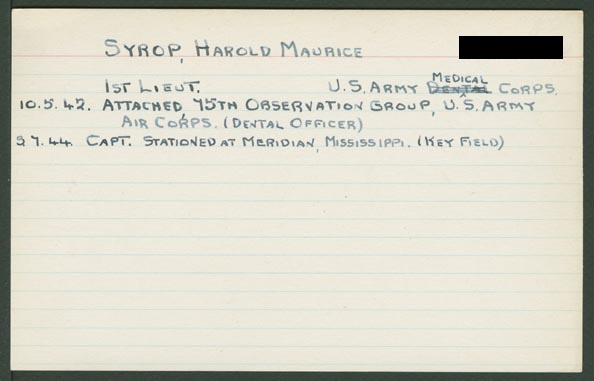 SYROP, HAROLD MAURICE
1ST LIEUT. U.S. ARMY DENTAL MEDICAL CORPS.
10.5.42. ATTACHED, 75TH OBSERVATION GROUP, U.S. ARMY
AIR CORPS. (DENTAL OFFICER)
9.7.44. CAPT. STATIONED AT MERIDIAN, MISSISSIPPI. (KEY FIELD)